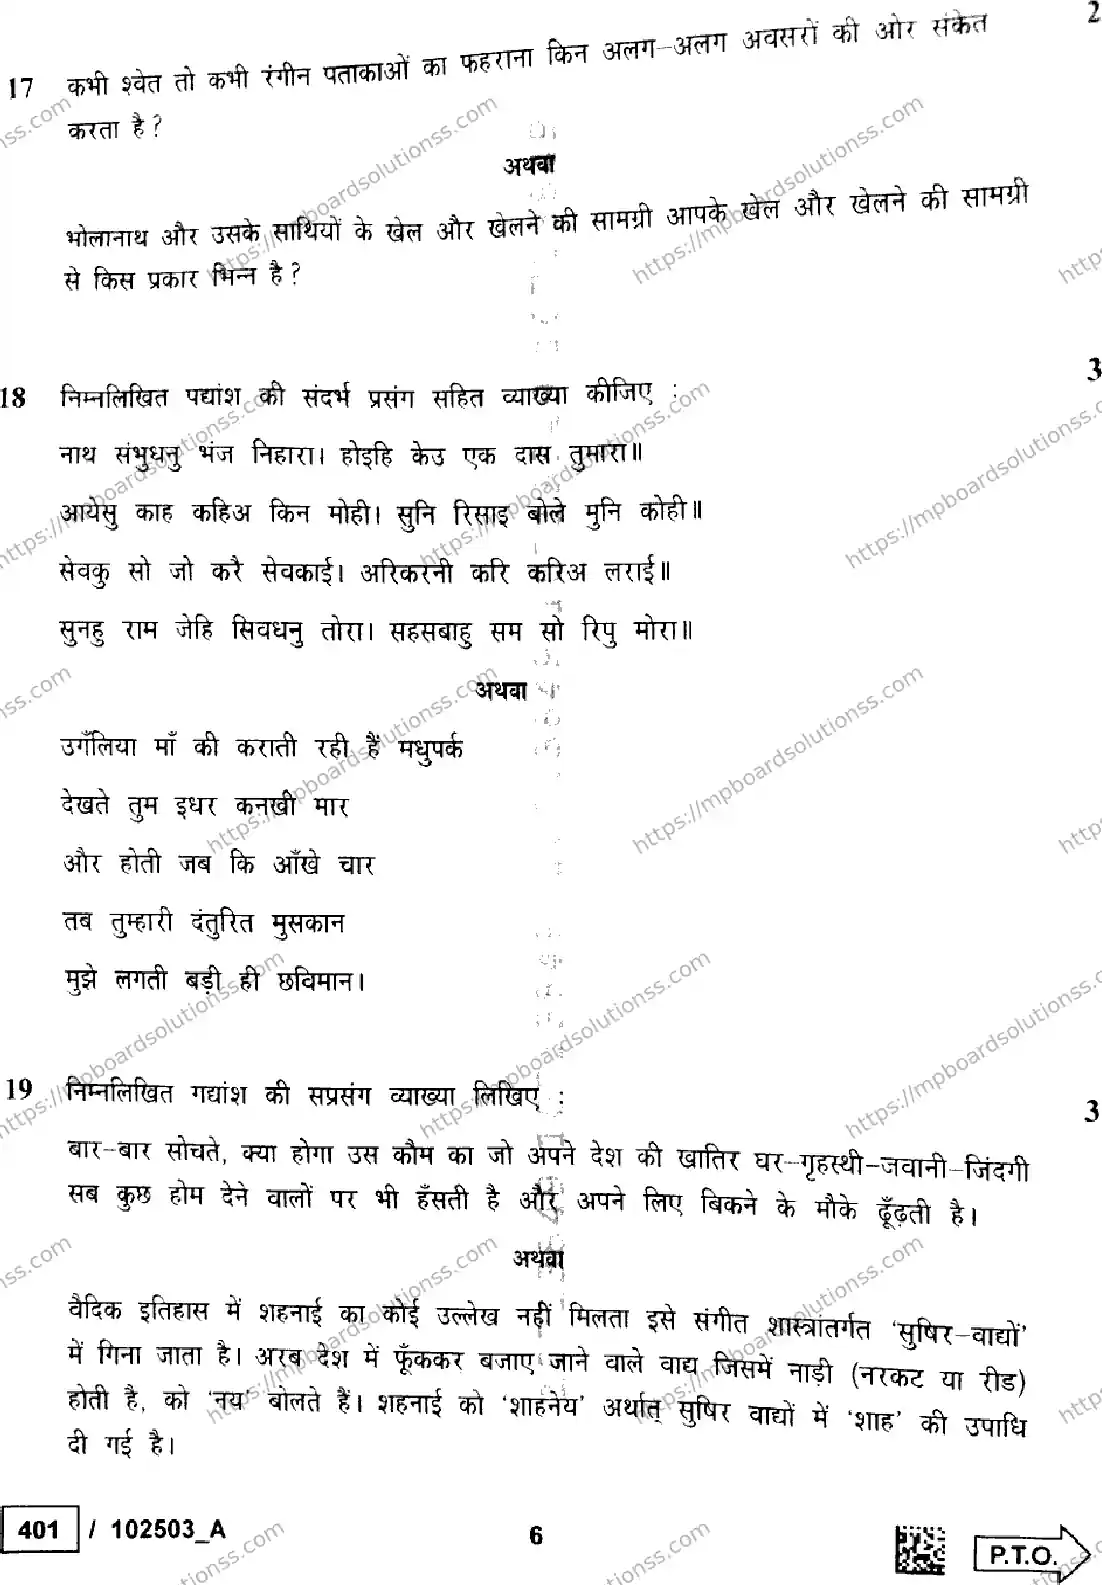 2
17 कभी श्वेत तो कभी रंगीन पताकाओं का फहराना किन अलग-अलग अवसरों की ओर संकेत
करता है?
अथवा
भोलानाथ और उसके साथियों के खेल और खेलने की सामग्री आपके खेल और खेलने की सामग्री
से किस प्रकार भिन्न है?
3
18 निम्नलिखित पद्यांश की संदर्भ प्रसंग सहित व्याख्या कीजिए :
नाथ संभुधनु भंज निहारा। होइहि केउ एक दास तुमारा॥
आयेसु काह कहिअ किन मोही। सुनि रिसाइ बोले मुनि कोही॥
सेवकु सो जो करै सेवकाई। अरिकरनी करि करिअ लराई॥
सुनहु राम जेहि सिवधनु तोरा। सहसबाहु सम सो रिपु मोरा॥
अथवा
उगँलिया माँ की कराती रही हैं मधुपर्क
देखते तुम इधर कनखी मार
और होती जब कि आँखे चार
तब तुम्हारी दंतुरित मुसकान
मुझे लगती बड़ी ही छविमान।
19 निम्नलिखित गद्यांश की सप्रसंग व्याख्या लिखिए :
3
बार-बार सोचते, क्या होगा उस कौम का जो अपने देश की खातिर घर-गृहस्थी-जवानी-जिंदगी
सब कुछ होम देने वालों पर भी हँसती है और अपने लिए बिकने के मौके ढूँढ़ती है।
अथवा
वैदिक इतिहास में शहनाई का कोई उल्लेख नहीं मिलता इसे संगीत शास्त्रांतर्गत 'सुषिर-वाद्यों'
में गिना जाता है। अरब देश में फूँककर बजाए जाने वाले वाद्य जिसमें नाड़ी (नरकट या रीड)
होती है, को 'नय' बोलते हैं। शहनाई को 'शाहनेय' अर्थात् सुषिर वाद्यों में 'शाह' की उपाधि
दी गई है।
401 / 102503_A
6
P.T.O.
https://mpboardsolutionss.com